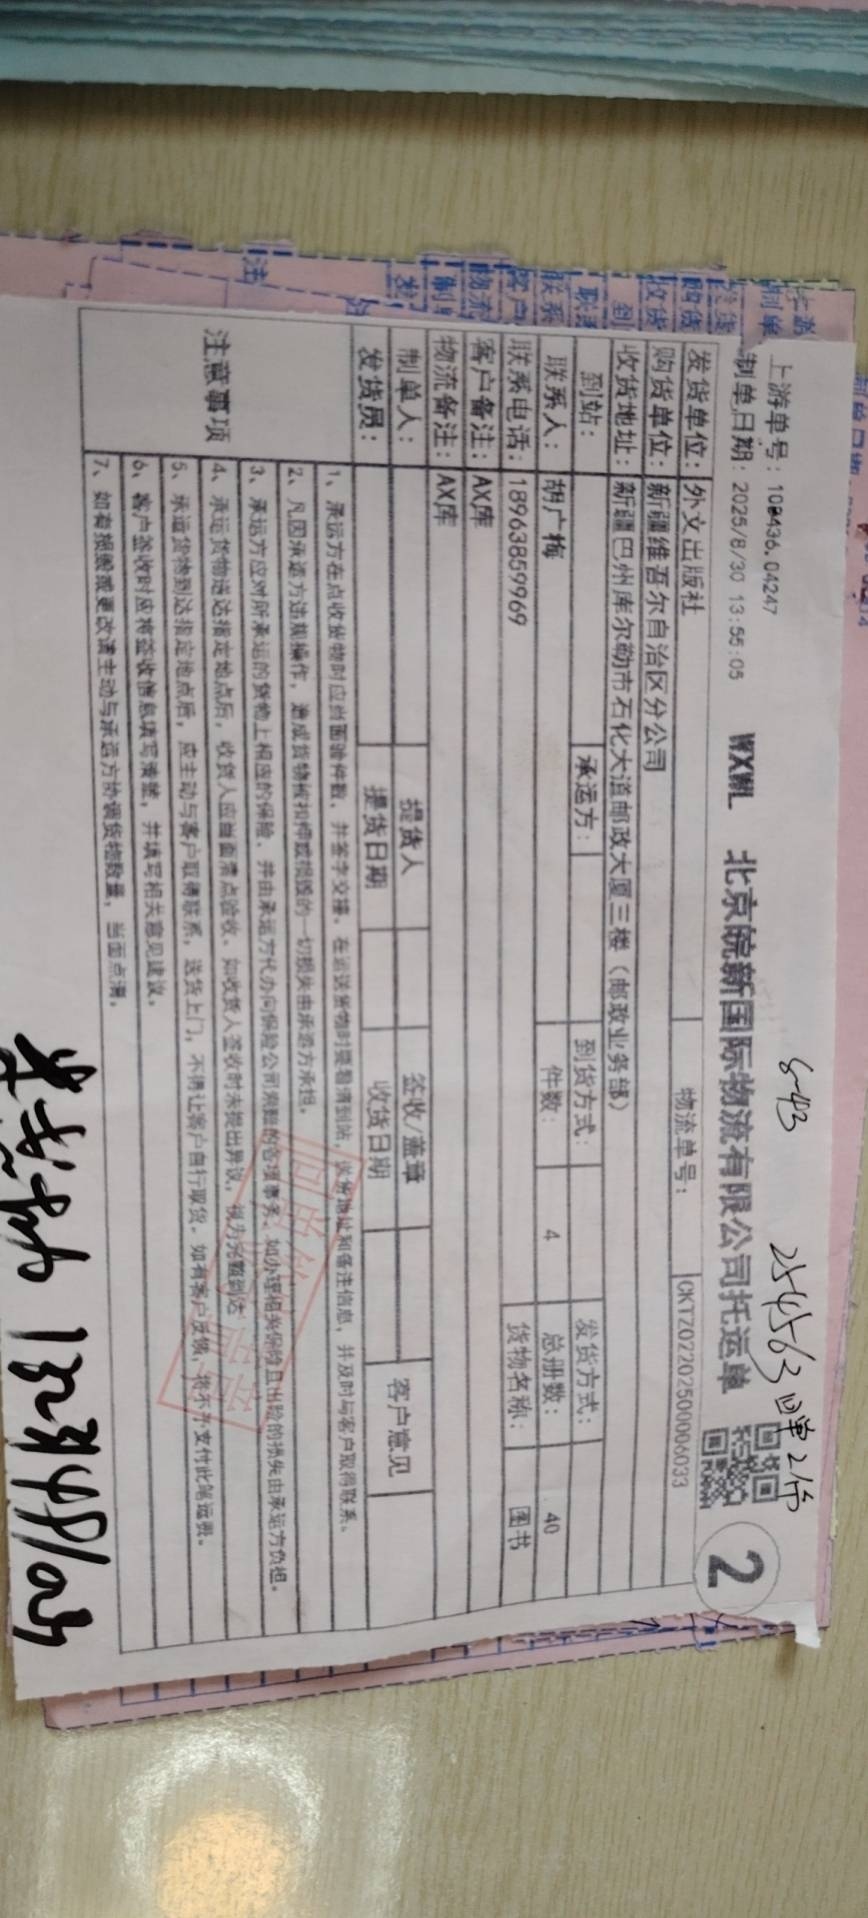 上游单号：108436.04247
5-43
254563 回单2份
制单日期：2025/8/30 13:55:05
WXWL 北京皖新国际物流有限公司托运单
2
发货单位：外文出版社 物流单号：CKTZ0220250006033
购货单位：新疆维吾尔自治区分公司
收货地址：新疆巴州库尔勒市石化大道邮政大厦三楼（邮政业务部）
到站： 承运方： 到货方式： 发货方式：
联系人：胡广梅 件数：4 总册数：40
联系电话：18963859969 货物名称：图书
客户备注：AX库
物流备注：AX库
制单人： 提货人 签收/盖章 客户意见
发货员： 提货日期 收货日期
注意事项
1、承运方在点收货物时应当面验件数，并签字交接。在运送货物时要看清到站，收货地址和备注信息，并及时与客户取得联系。
2、凡因承运方违规操作，造成货物被扣押或损毁的一切损失由承运方承担。
3、承运方应对所承运的货物上相应的保险，并由承运方代办向保险公司索赔的各项事务。如办理相关保险且出险的损失由承运方负担。
4、承运货物送达指定地点后，收货人应当面清点验收。如收货人签收时未提出异议，视为完整到达
5、承运货物到达指定地点后，应主动与客户取得联系，送货上门，不得让客户自行取货。如有客户反馈，将不予支付此笔运费。
6、客户签收时应将签收信息填写清楚，并填写相关意见建议。
7、如有损毁或更改请主动与承运方协调货物数量，当面点清。